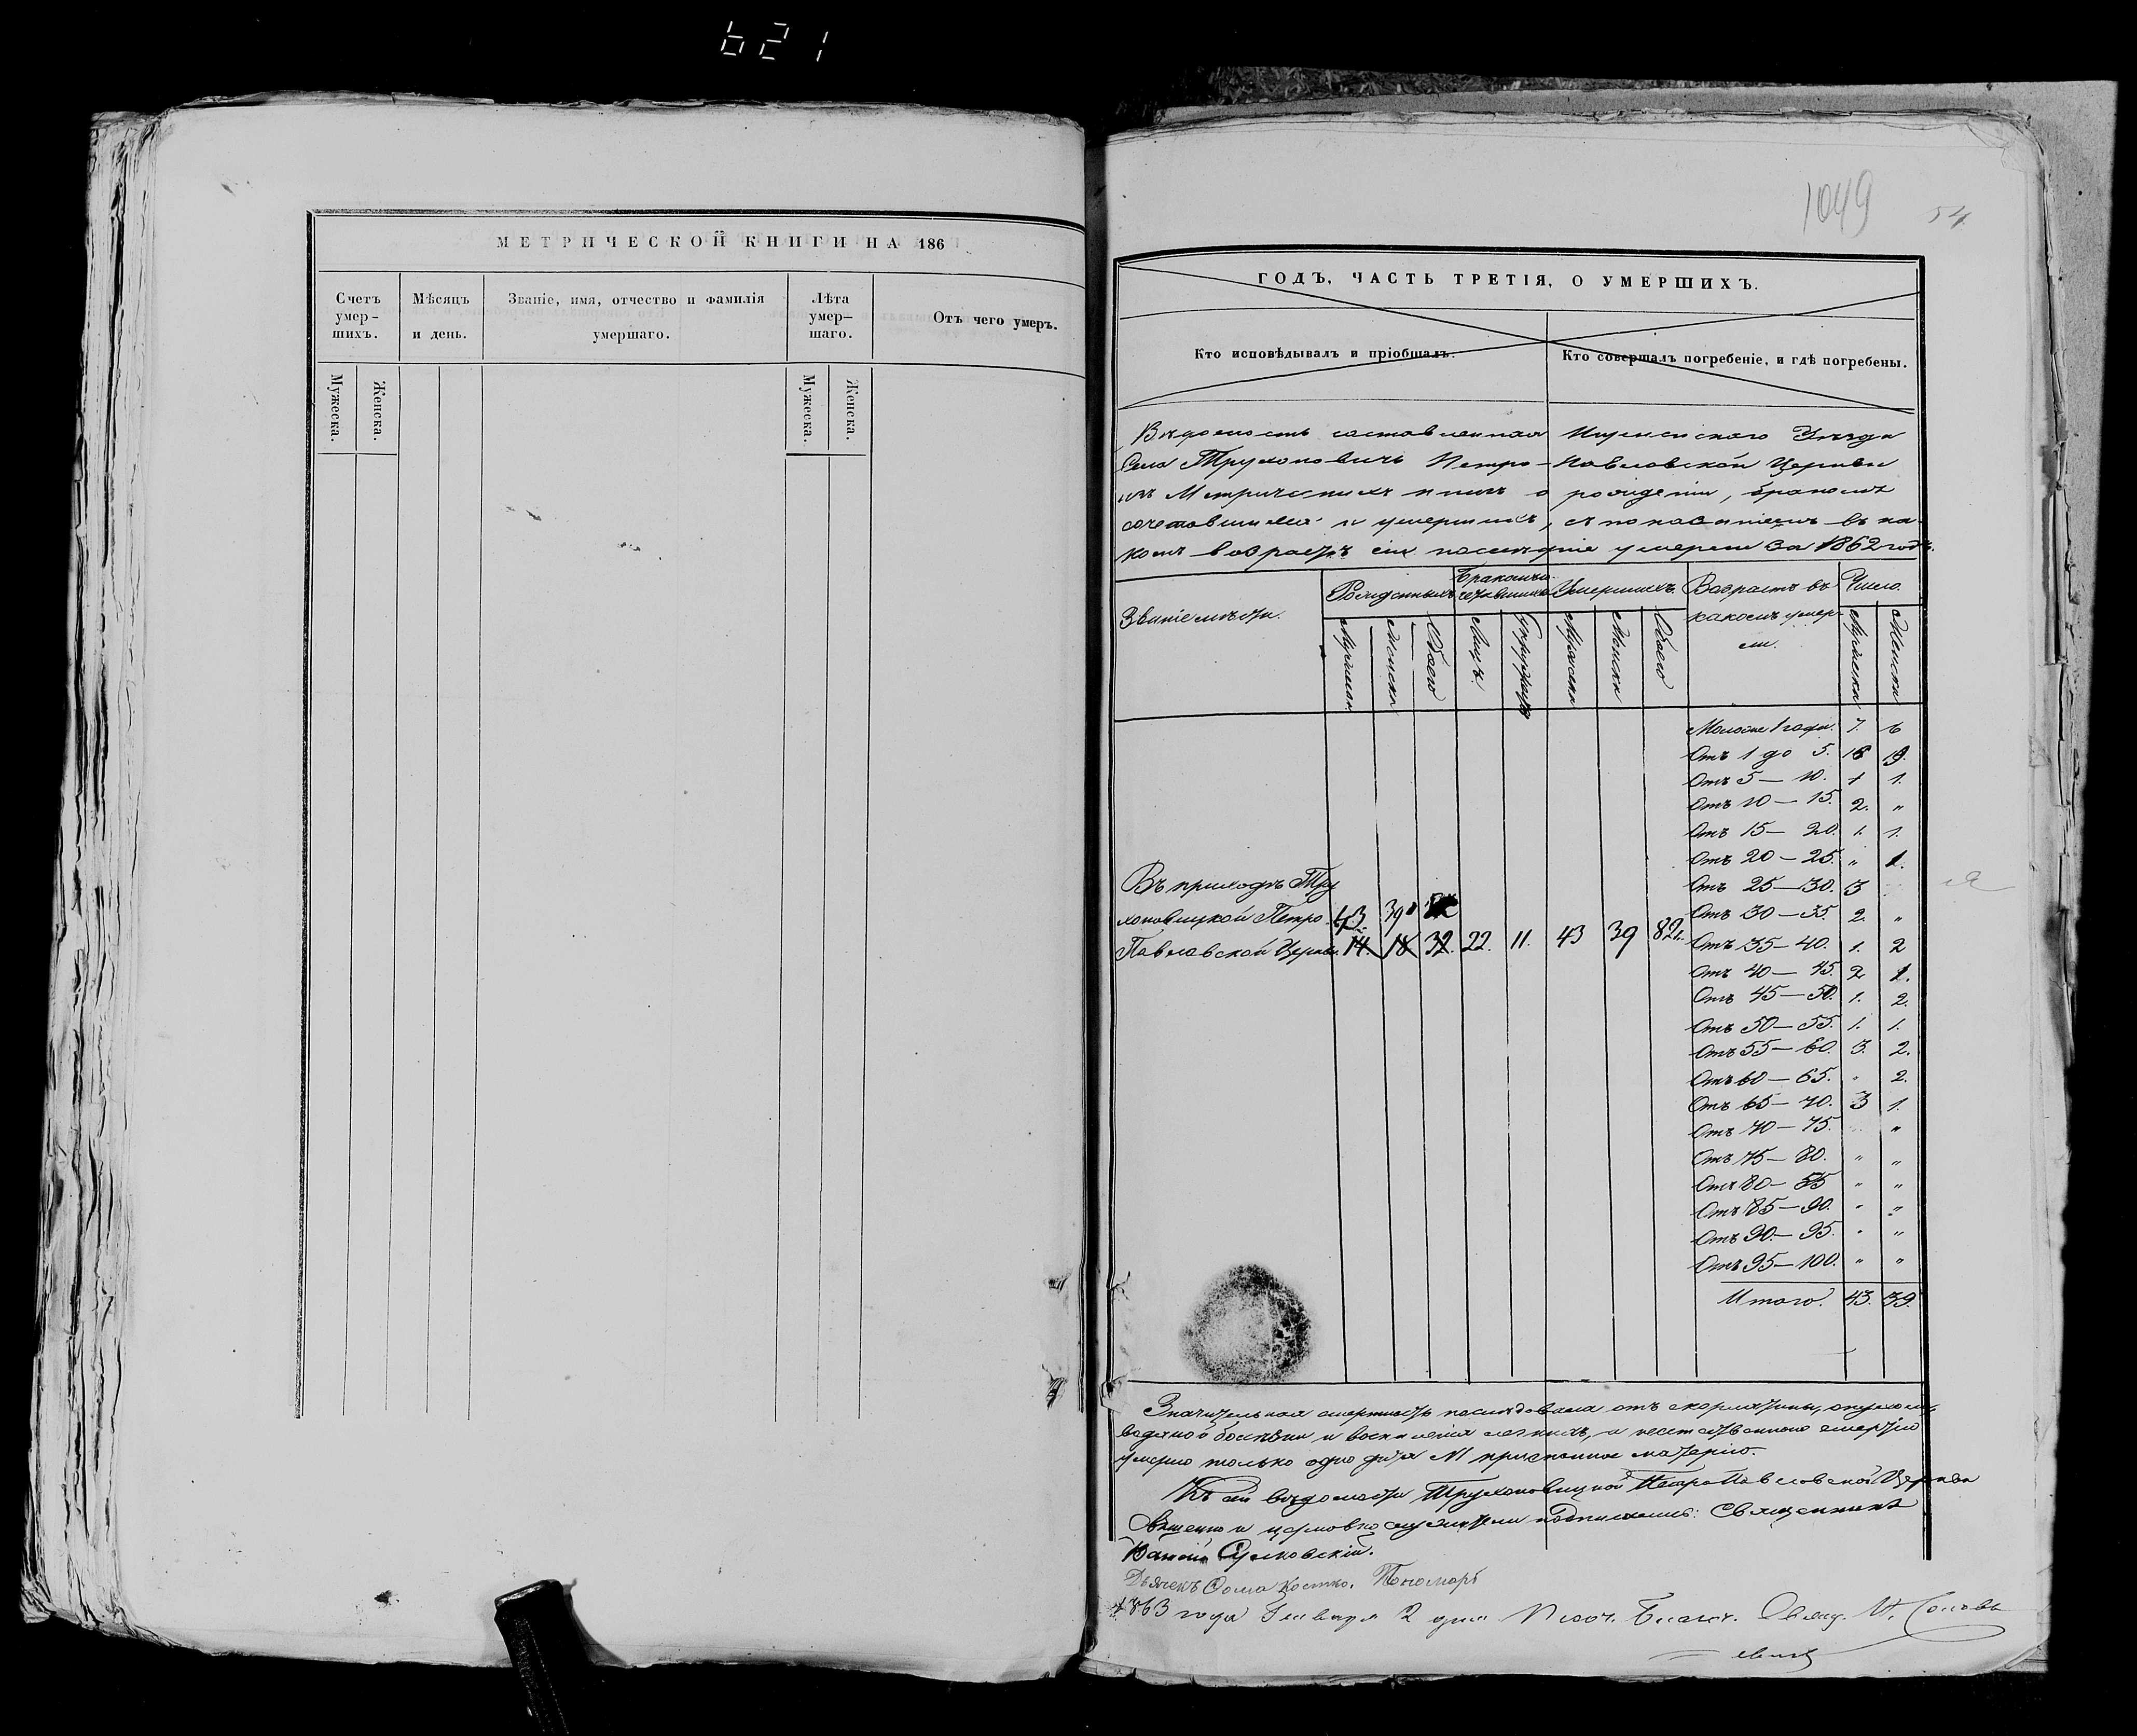 621
МЕТРИЧЕСКОЙ КНИГИ НА 186
Счетъ умер-шихъ.
Мѣсяцъ и день.
Званіе, имя, отчество и фамилія умершаго.
Лѣта умер-шаго.
Отъ чего умеръ.
Мужеска.
Женска.
Мужеска.
Женска.
1049
54
ГОДЪ, ЧАСТЬ ТРЕТІЯ, О УМЕРШИХЪ.
Кто исповѣдывалъ и пріобщалъ.
Кто совершалъ погребеніе, и гдѣ погребены.
Вѣдомость составленная Игуменскаго Уѣзда
Села Трухоновичъ Петро-Павловской Церкви
изъ Метрическихъ книгъ о рожденіи, бракомъ
сочетавшихся и умершихъ, съ показаніемъ въ ка-
комъ возрастѣ сіи послѣдніе умерли за 1862 годъ.
Званіе мѣста.
Рожденныхъ
Бракомъ сочетавшихся
Умершихъ.
Возрастъ въ какомъ умерли.
Число.
Мужеска
Женска
Обоего
Лицъ.
Супружествъ
Мужеска
Женска
Обоего
Мужеска
Женска
Моложе 1 года. 7. 6
Отъ 1 до 5. 16 19.
Отъ 5 — 10. 1 1.
Отъ 10 — 15. 2. "
Отъ 15 — 20. 1. 1.
Отъ 20 — 25. " 1.
Отъ 25 — 30. 3
Отъ 30 — 35. 2. "
Отъ 35 — 40. 1. 2
Отъ 40 — 45. 2 1.
Отъ 45 — 50. 1. 2.
Отъ 50 — 55. 1. 1.
Отъ 55 — 60. 3. 2.
Отъ 60 — 65. " 2.
Отъ 65 — 70. 3 1.
Отъ 70 — 75. "
Отъ 75 — 80. " "
Отъ 80 — 85 " "
Отъ 85 — 90. " "
Отъ 90 — 95. " "
Отъ 95 — 100. " "
Итого. 43. 39.
Въ приходѣ Тру
хоновицкой Петро 43. 39
Павловской Церкви. 14. 18 32. 22. 11. 43 39 82.
Значительная смертность послѣдовала отъ скарлатины, опухоли,
водяной болѣзни и воспаленія легкихъ, а неестественною смертію
умерло только одно дитя М приспанное матерію.
Къ сей вѣдомости Трухоновицкой Петро Павловской Церкви
Священно и церковно служители подписались: Священникъ
Сулковскій.
Дьячекъ Ѳома Костко. Пономарь
1863 года Января 2 дня Благ. Свящ.